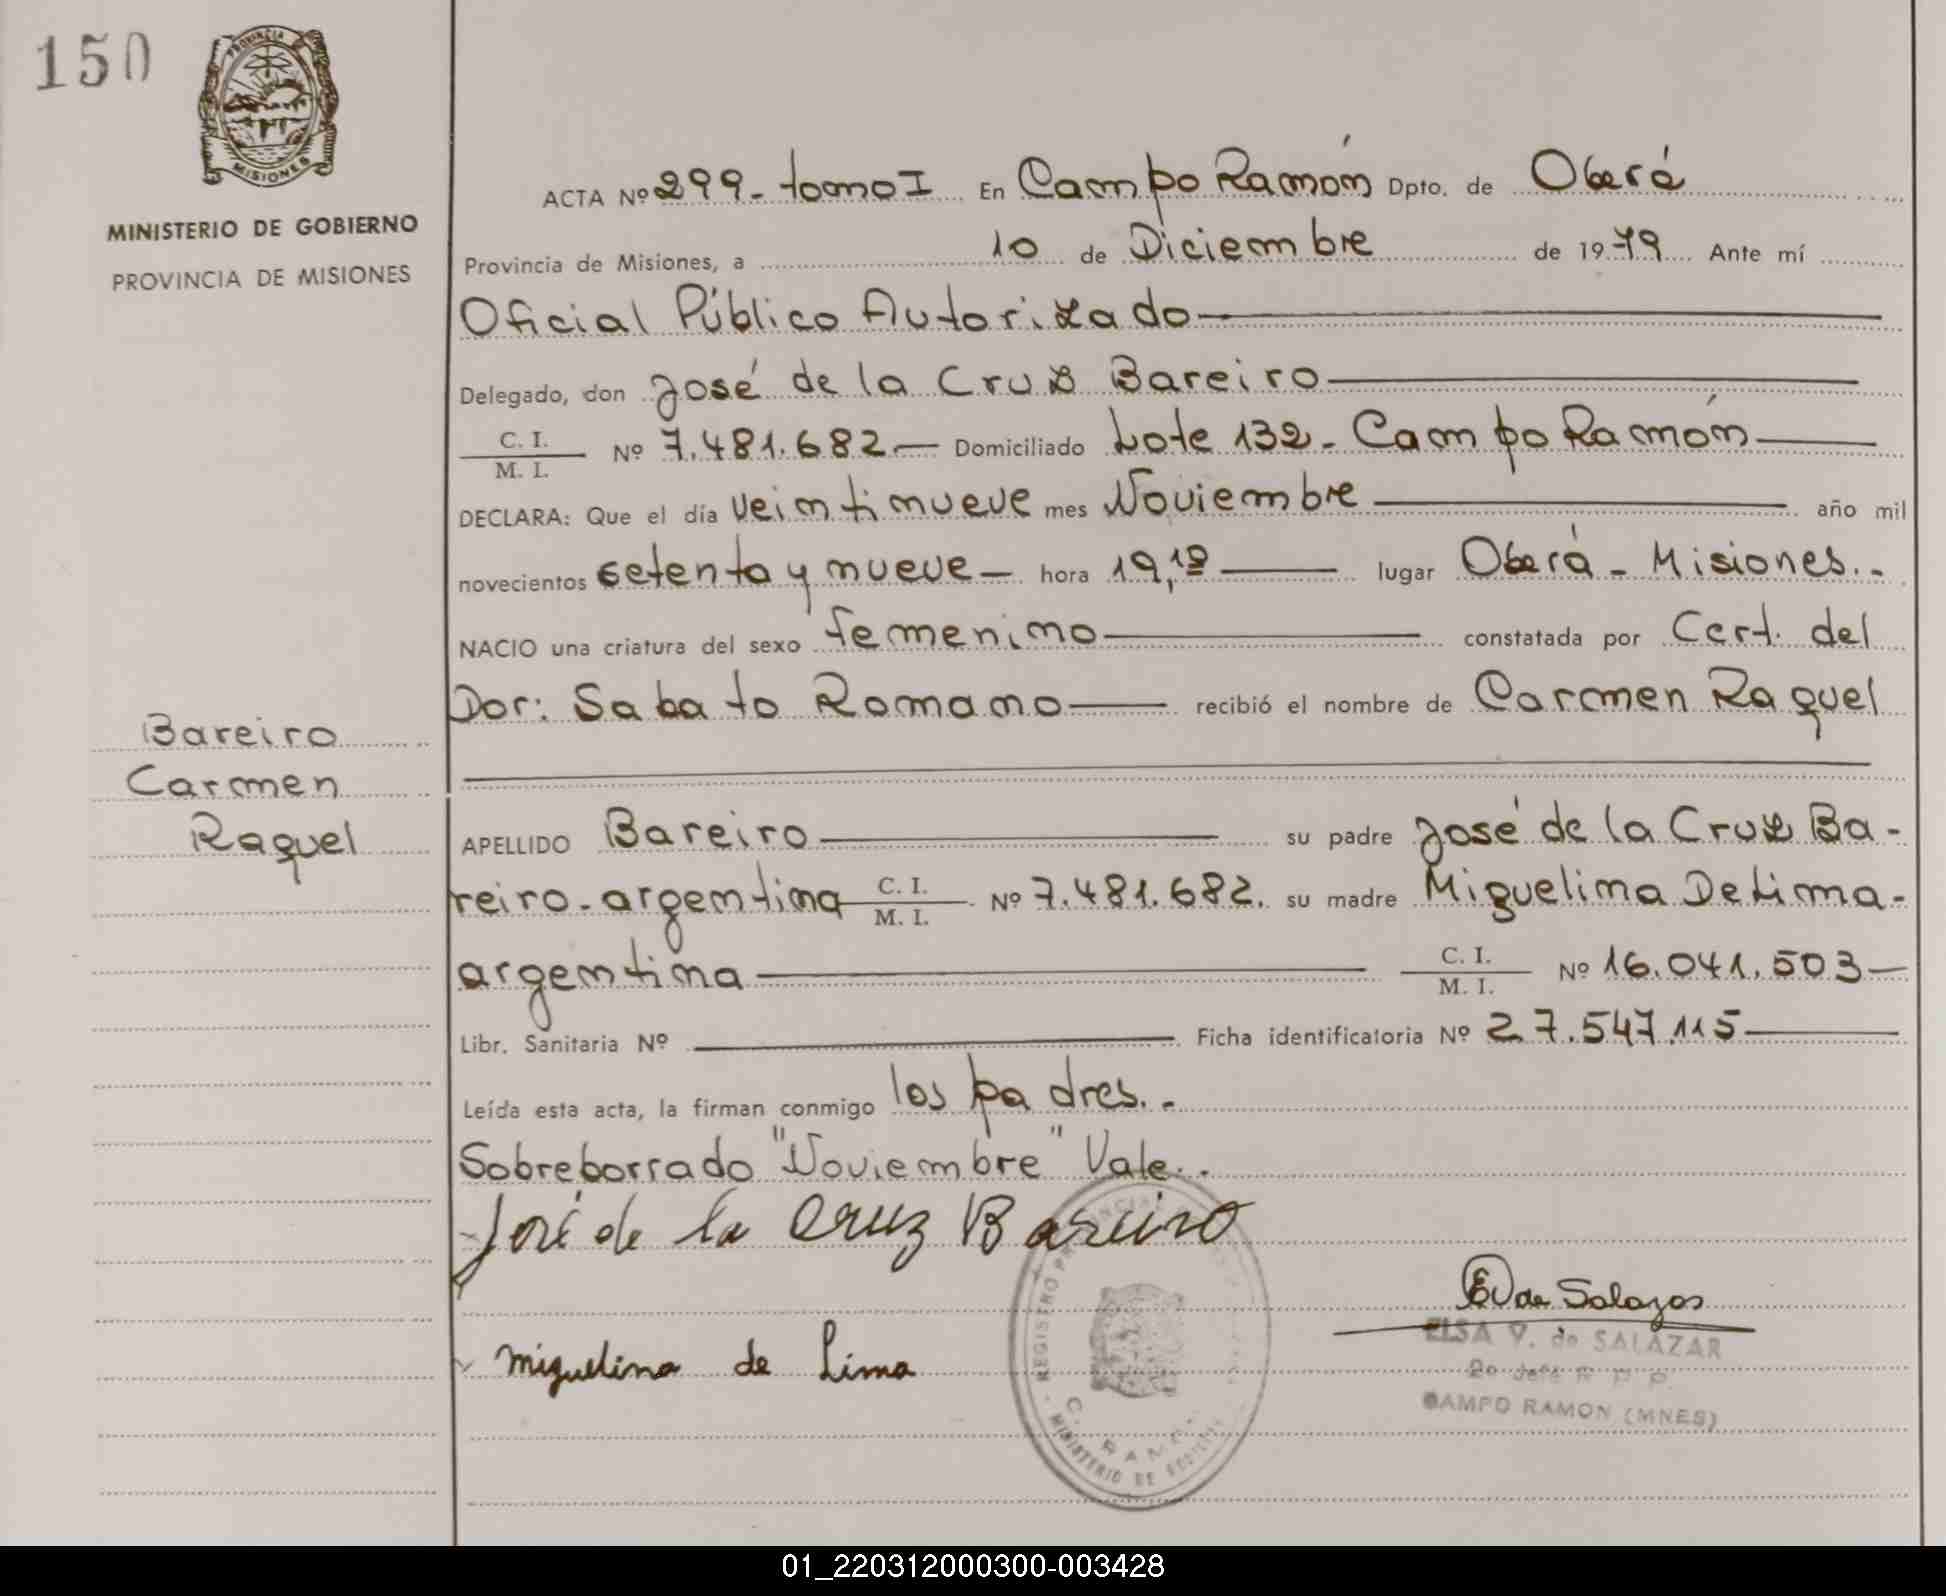 150
PROVINCIA
MISIONES
MINISTERIO DE GOBIERNO
PROVINCIA DE MISIONES
Bareiro
Carmen
Raquel
ACTA Nº 299 - tomo I En Campo Ramón Dpto. de Oberá
Provincia de Misiones, a 10 de Diciembre de 1979 Ante mí
Oficial Público Autorizado
Delegado, don José de la Cruz Bareiro
C. I. / M. I. Nº 7.481.682.— Domiciliado Lote 132 - Campo Ramón
DECLARA: Que el día veintinueve mes Noviembre año mil
novecientos setenta y nueve — hora 19,10 lugar Oberá - Misiones.-
NACIO una criatura del sexo femenino constatada por Cert. del
Dor: Sabato Romano recibió el nombre de Carmen Raquel
APELLIDO Bareiro su padre José de la Cruz Ba-
reiro - argentina C. I. / M. I. Nº 7.481.682. su madre Miguelina De Lima -
argentina C. I. / M. I. Nº 16.041.503 —
Libr. Sanitaria Nº Ficha identificatoria Nº 27.547.115
Leída esta acta, la firman conmigo los padres.-
Sobreborrado "Noviembre" Vale.-
José de la Cruz Bareiro
E V de Salazar
ELSA V. de SALAZAR
CAMPO RAMON (MNES)
miguelina de Lima
REGISTRO
MINISTERIO DE
01_220312000300-003428